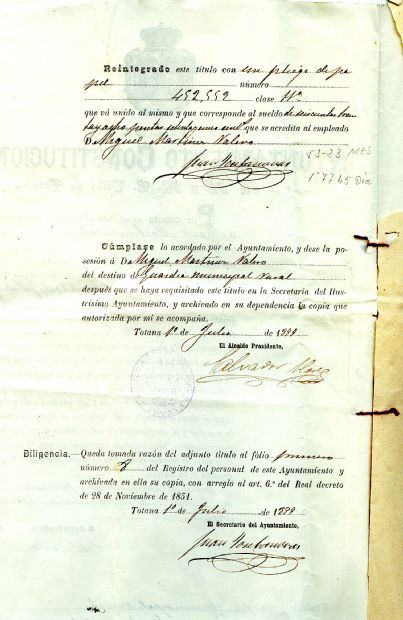 Reintegrado este título con un pliego de pa
pel número
452,552 clase 11ª
que vá unido al mismo y que corresponde al sueldo de
que se acredita al empleado
D Miguel Martinez Valero
53-23 MES
1'7745 Día
Cúmplase lo acordado por el Ayuntamiento, y dese la po-
sesión á D Miguel Martinez Valero
del destino de Guardia municipal rural
después que se haya requisitado este título en la Secretaría del Ilus-
trísimo Ayuntamiento, y archivado en su dependencia la copia que
autorizada por mi se acompaña.
Totana 1º de Julio de 1899
El Alcalde Presidente,
Salvador
Diligencia.—Queda tomada razón del adjunto título al fólio primero
número del Registro del personal de este Ayuntamiento y
archivada en ella su copia, con arreglo al art. 6.º del Real decreto
de 28 de Noviembre de 1851.
Totana 1º de Julio de 1899
El Secretario del Ayuntamiento,
Juan